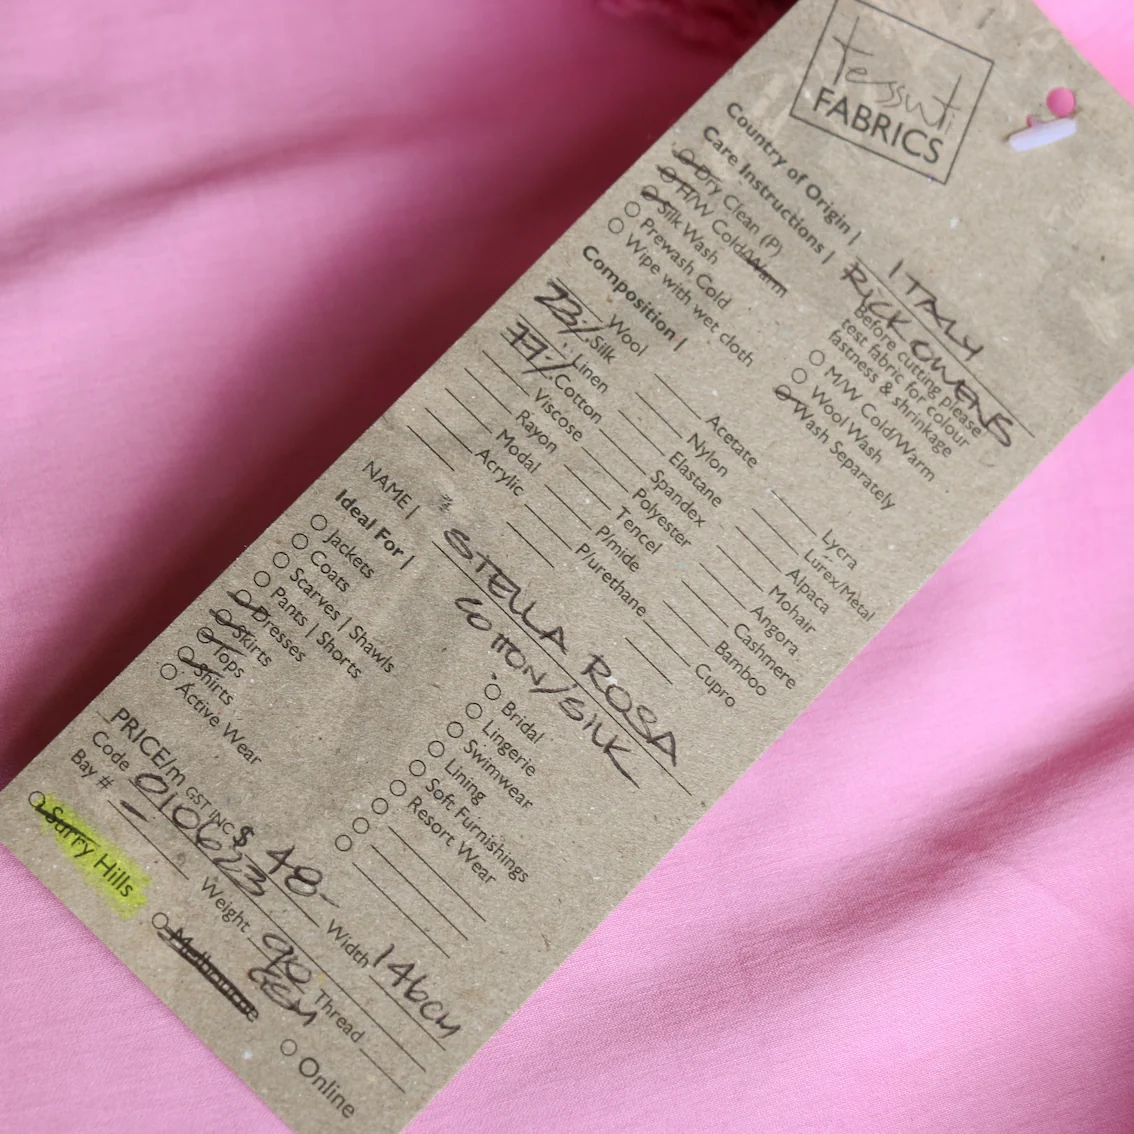 tessuti
FABRICS
Country of Origin | ITALY
Care Instructions | RICK OWENS
Dry Clean (P)
H/W Cold/Warm
Silk Wash
Prewash Cold
Wipe with wet cloth
Before cutting please
test fabric for colour
fastness & shrinkage
M/W Cold/Warm
Wool Wash
Wash Separately
Composition |
Wool
23% Silk
Linen
77% Cotton
Viscose
Rayon
Modal
Acrylic
Acetate
Nylon
Elastane
Spandex
Polyester
Tencel
P/mide
P/urethane
Lycra
Lurex/Metal
Alpaca
Mohair
Angora
Cashmere
Bamboo
Cupro
NAME | STELLA ROSA
COTTON/SILK
Ideal For |
Jackets
Coats
Scarves | Shawls
Pants | Shorts
Dresses
Skirts
Tops
Shirts
Active Wear
Bridal
Lingerie
Swimwear
Lining
Soft Furnishings
Resort Wear
PRICE/m GST INC $ 48- Width 146cm
Code 010623 Weight 90 GSM Thread
Bay # -
Surry Hills
Melbourne
Online